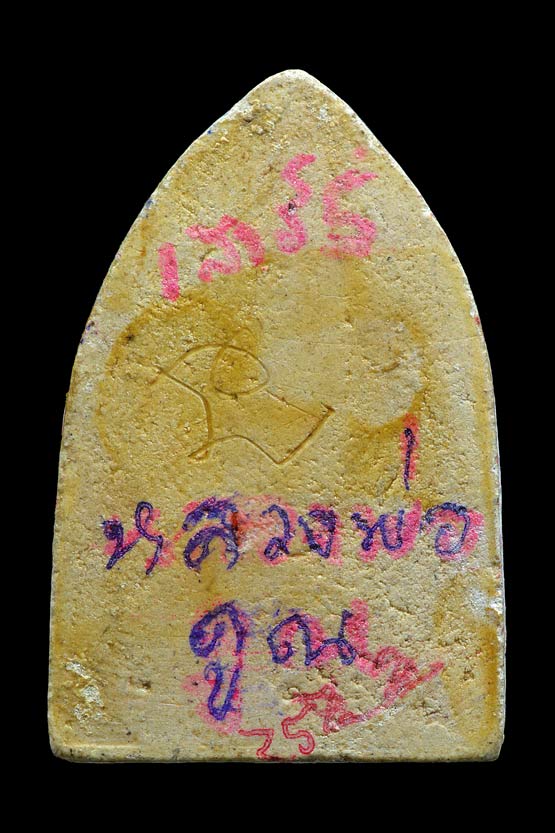 เสาร์๕
หลวงพ่อ
คูณ